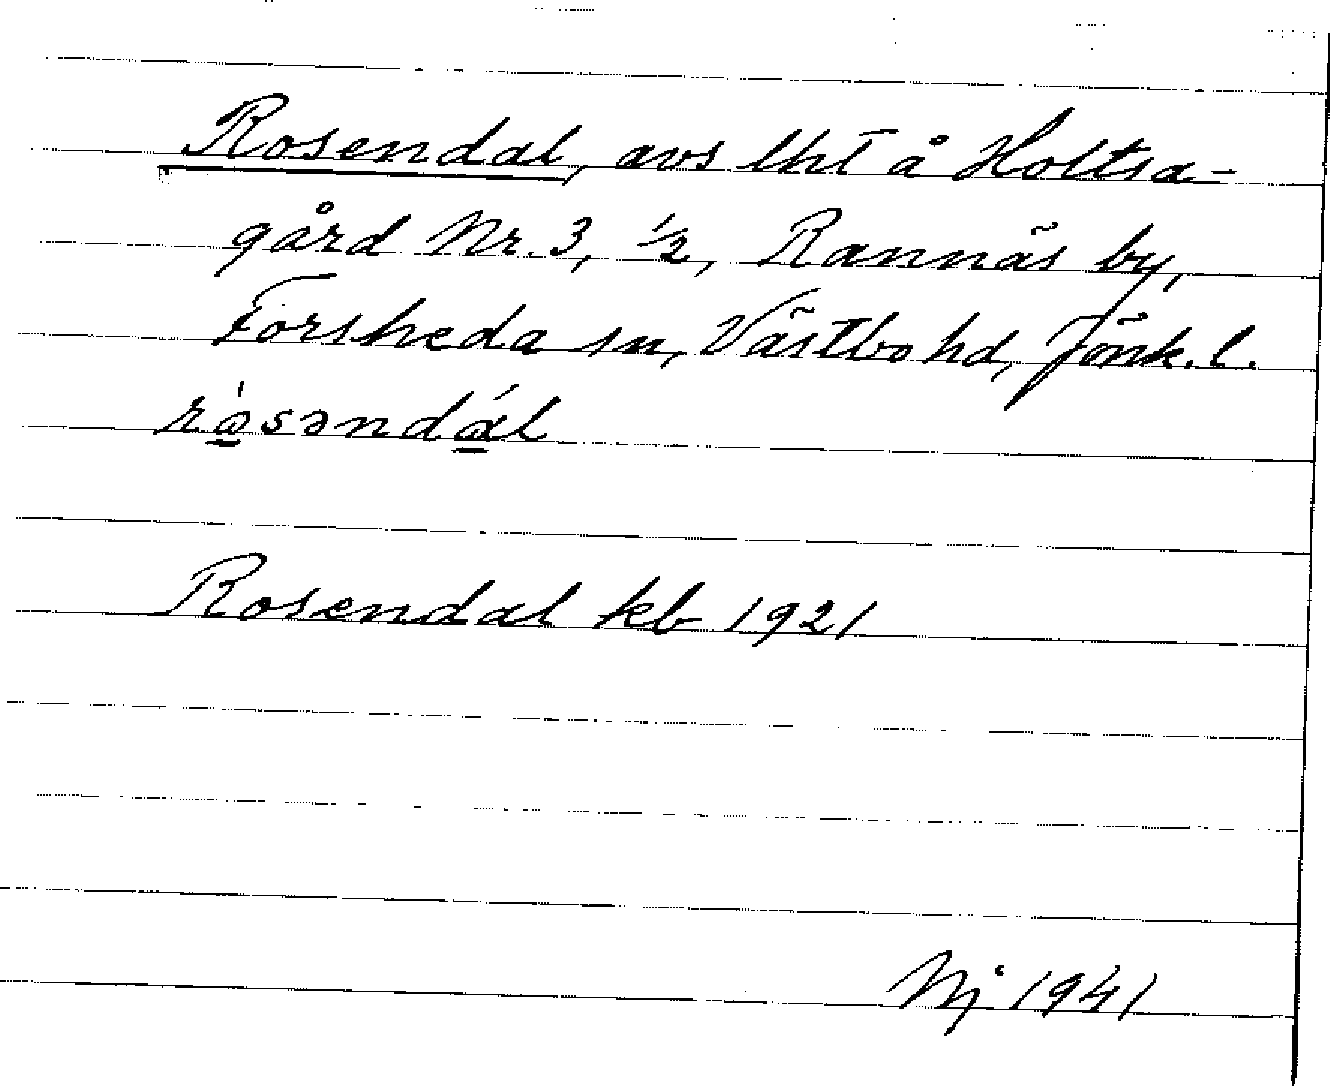 Rosendal, avs lht å Holtsa-
gård Nr. 3, ½, Rannäs by,
Forsheda sn, Västbo hd, Jönk. l.
rósəndál
Rosendal kb 1921
Nj 1941